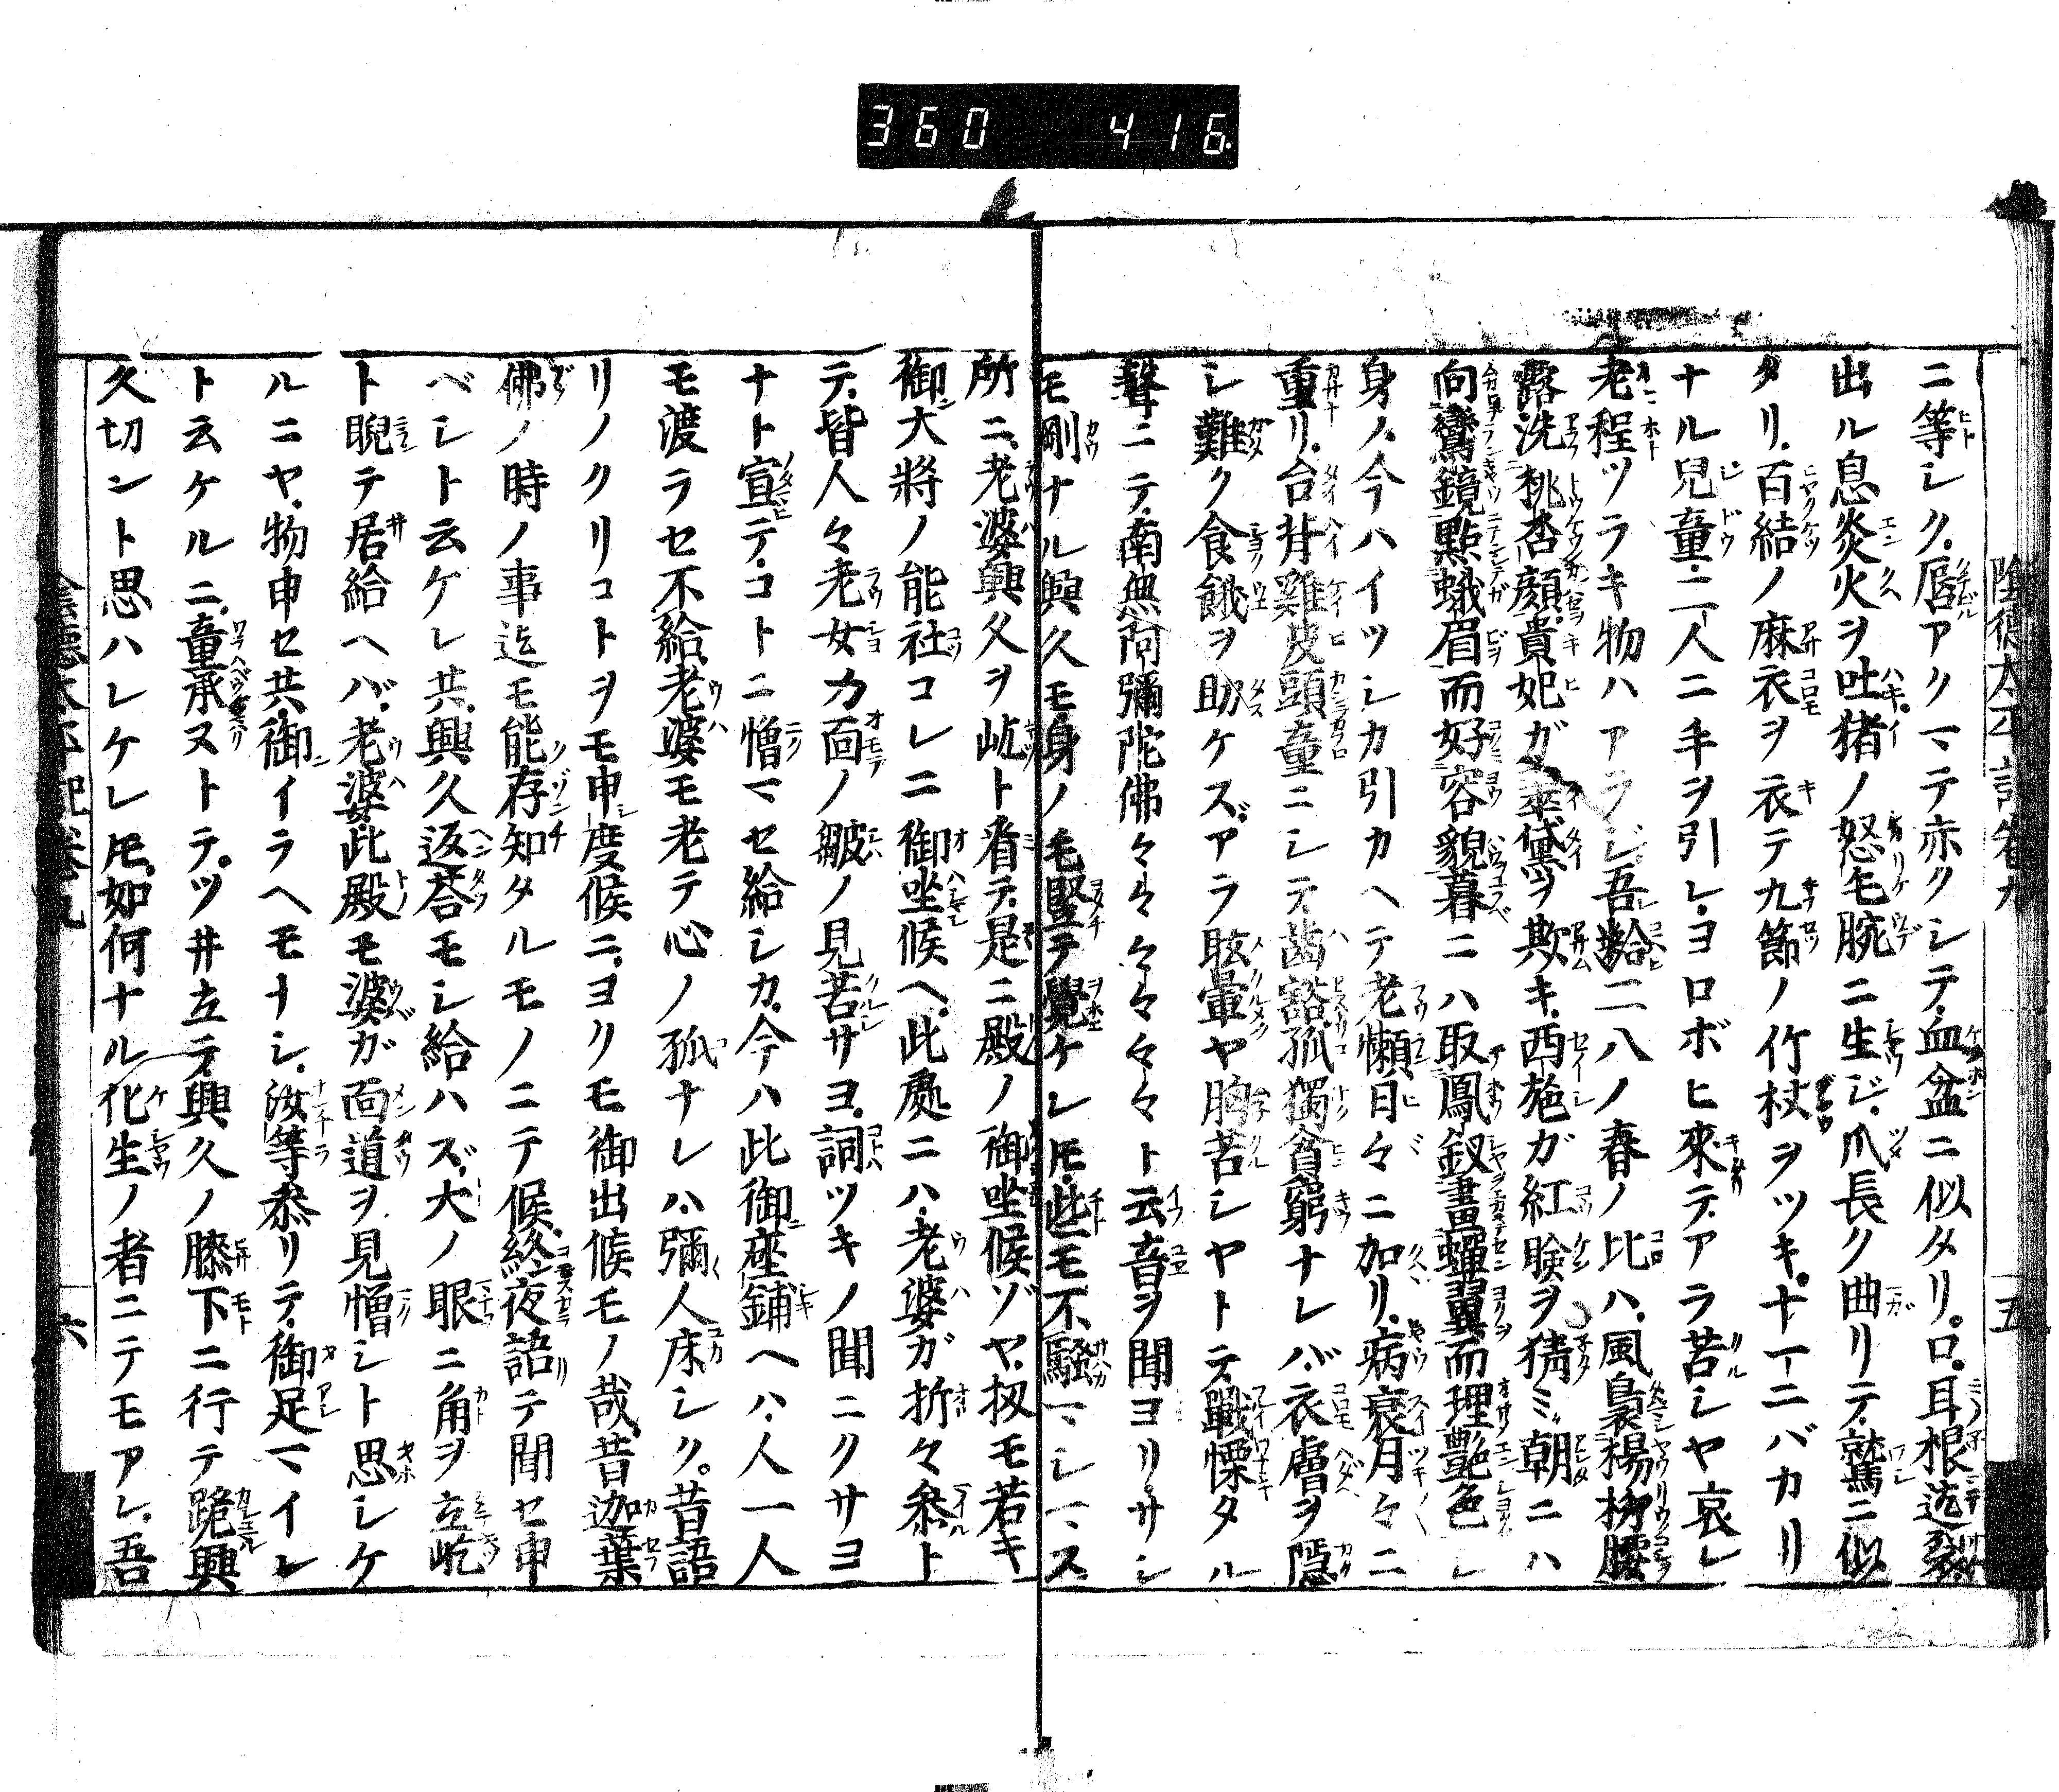 360 416
陰徳太平記卷九 五
ニ等シク。唇アクマテ赤クシテ。血盆ニ似タリ。口。耳根迄裂
出ル息炎火ヲ吐。猪ノ怒毛腕ニ生ジ。爪長ク曲リテ。鷲ニ似
タリ。百結ノ麻衣ヲ衣テ九節ノ竹杖ヲツキ。十一ニバカリ
ナル兒童。二人ニ手ヲ引レ。ヨロボヒ來テ。アラ苦シヤ哀レ
老程ツラキ物ハアラジ。吾齡二八ノ春ノ比ハ。風裊楊栁腰
露洗桃杏顔。貴妃ガ翠黛ヲ欺キ。西施ガ紅瞼ヲ猜ミ。朝ニハ
向鸞鏡點蛾眉而好容貌暮ニハ取鳳釵畫蟬翼而理艶色シ
身ノ。今ハイツシカ引カヘテ老懶日々ニ加リ。病衰月々ニ
重リ。台背雞皮頭童ニシテ。齒豁孤獨貧窮ナレバ。衣膚ヲ隱
シ難ク食餓ヲ助ケズ。アラ眩暈ヤ胸苦シヤトテ。戰慄タル
聲ニテ。南無阿彌陀佛々々々々々々ト云音ヲ聞ヨリ。サシ
モ剛ナル興久モ身ノ毛竪テ覺ケレ𪜈。些モ不騷マシマス
所ニ。老婆興久ヲ屹ト看テ。是ニ殿ノ御坐候ゾヤ。扨モ若キ
御大將ノ能社コレニ御坐候へ。此處ニハ。老婆ガ折々參ト
テ。皆人々老女カ面ノ皺ノ見苦サヨ。詞ツキノ聞ニクサヨ
ナト宣テ。コトニ憎マセ給シカ。今ハ此御座鋪ヘハ。人一人
モ渡ラセ不給。老婆モ老テ心ノ孤ナレハ。彌人床シク。昔語
リノクリコトヲモ申度候ニ。ヨクモ御出候モノ哉。昔迦葉
佛ノ時ノ事迄モ能存知タルモノニテ候。終夜語テ聞セ申
ベシト云ケレ共。興久返荅モシ給ハズ。大ノ眼ニ角ヲ立屹
ト睨テ居給ヘバ。老婆。此殿モ婆ガ面道ヲ見憎シト思シケ
ルニヤ。物申セ共。御イラヘモナシ。汝等參リテ。御足マイレ
ト云ケルニ。童承ヌトテ。ツ井立テ。興久ノ膝下ニ行テ跪興
久切ント思ハレケレ𪜈。如何ナル化生ノ者ニテモアレ。吾
陰德太平記卷九 六